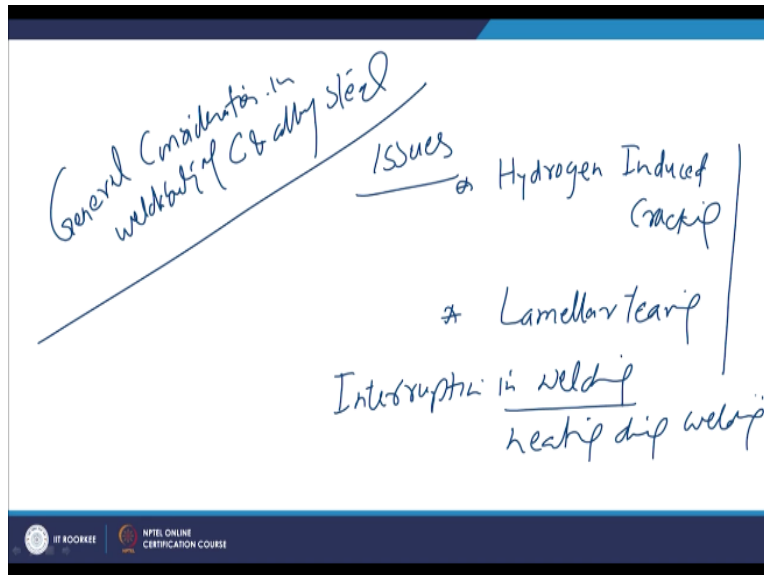 General Consideration in
weldability of C & alloy steel
Issues
* Hydrogen Induced
Cracking
* Lamellar Tearing
Interruption in welding
heating during welding
IIT ROORKEE
NPTEL ONLINE
CERTIFICATION COURSE